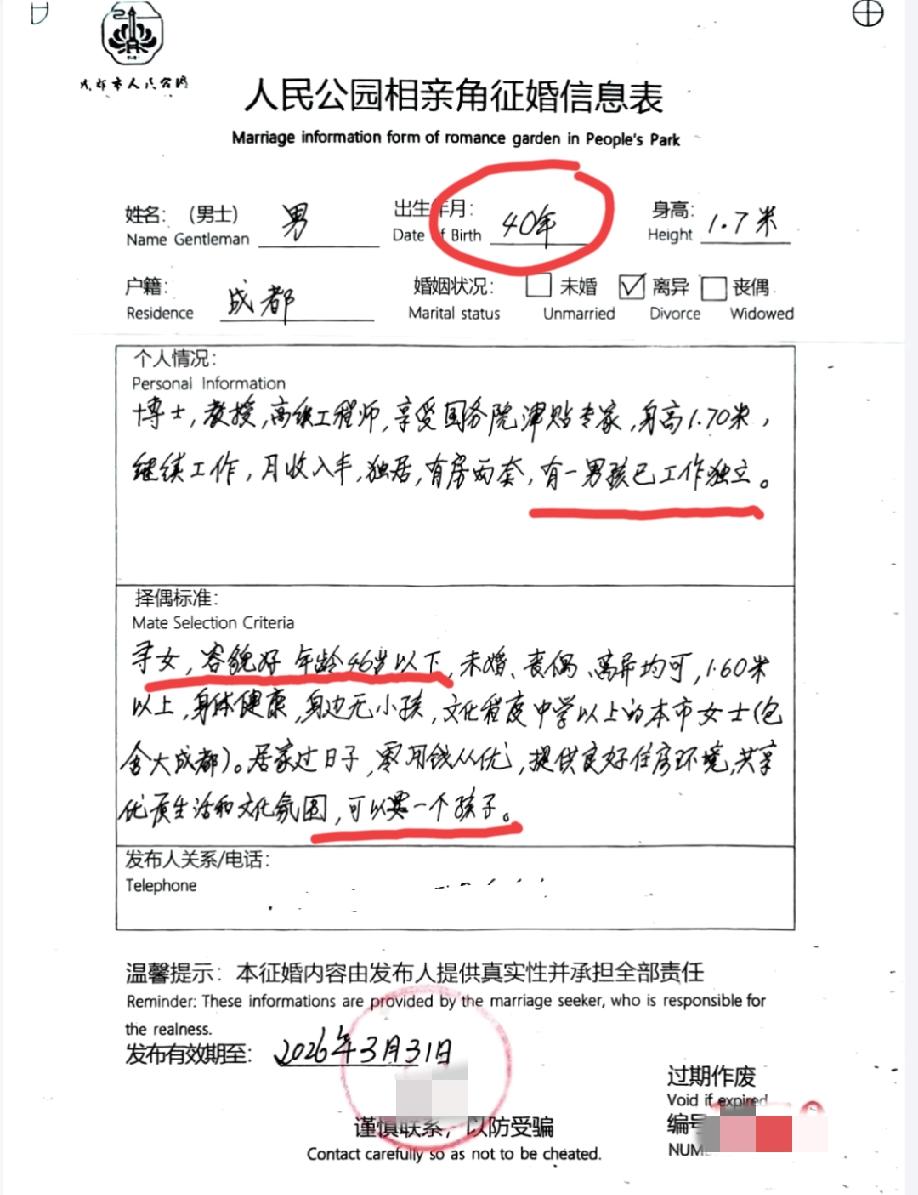 成都市人民公园
人民公园相亲角征婚信息表
Marriage information form of romance garden in People's Park
姓名：（男士） 男 出生年月： 40年 身高： 1.7米
Name Gentleman Date of Birth Height
户籍： 成都 婚姻状况： 未婚 ✓ 离异 丧偶
Residence Marital status Unmarried Divorce Widowed
个人情况：
Personal Information
博士，教授，高级工程师，享受国务院津贴专家，身高1.70米，
继续工作，月收入丰，独居，有房两套，有一男孩已工作独立。
择偶标准：
Mate Selection Criteria
寻女，容貌好 年龄46岁以下，未婚、丧偶、离异均可，1.60米
以上，身体健康，身边无小孩，文化程度中学以上的本市女士（包
含大成都）。居家过日子，零用钱从优，提供良好住房环境，共享
优质生活和文化氛围，可以要一个孩子。
发布人关系/电话：
Telephone
温馨提示：本征婚内容由发布人提供真实性并承担全部责任
Reminder: These informations are provided by the marriage seeker, who is responsible for
the realness.
发布有效期至： 2026年3月31日
过期作废
Void if expired
谨慎联系，以防受骗
编号
Contact carefully so as not to be cheated.